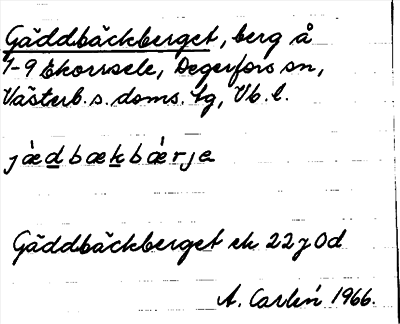 Gäddbäckberget, berg å
1-9 Ekorrsele, Degerfors sn,
Västerb. s. doms. tg, Vb. l.
jæ̀dbækbæ̀rje
Gäddbäckberget ek 22 J 0d
A. Carlén 1966.